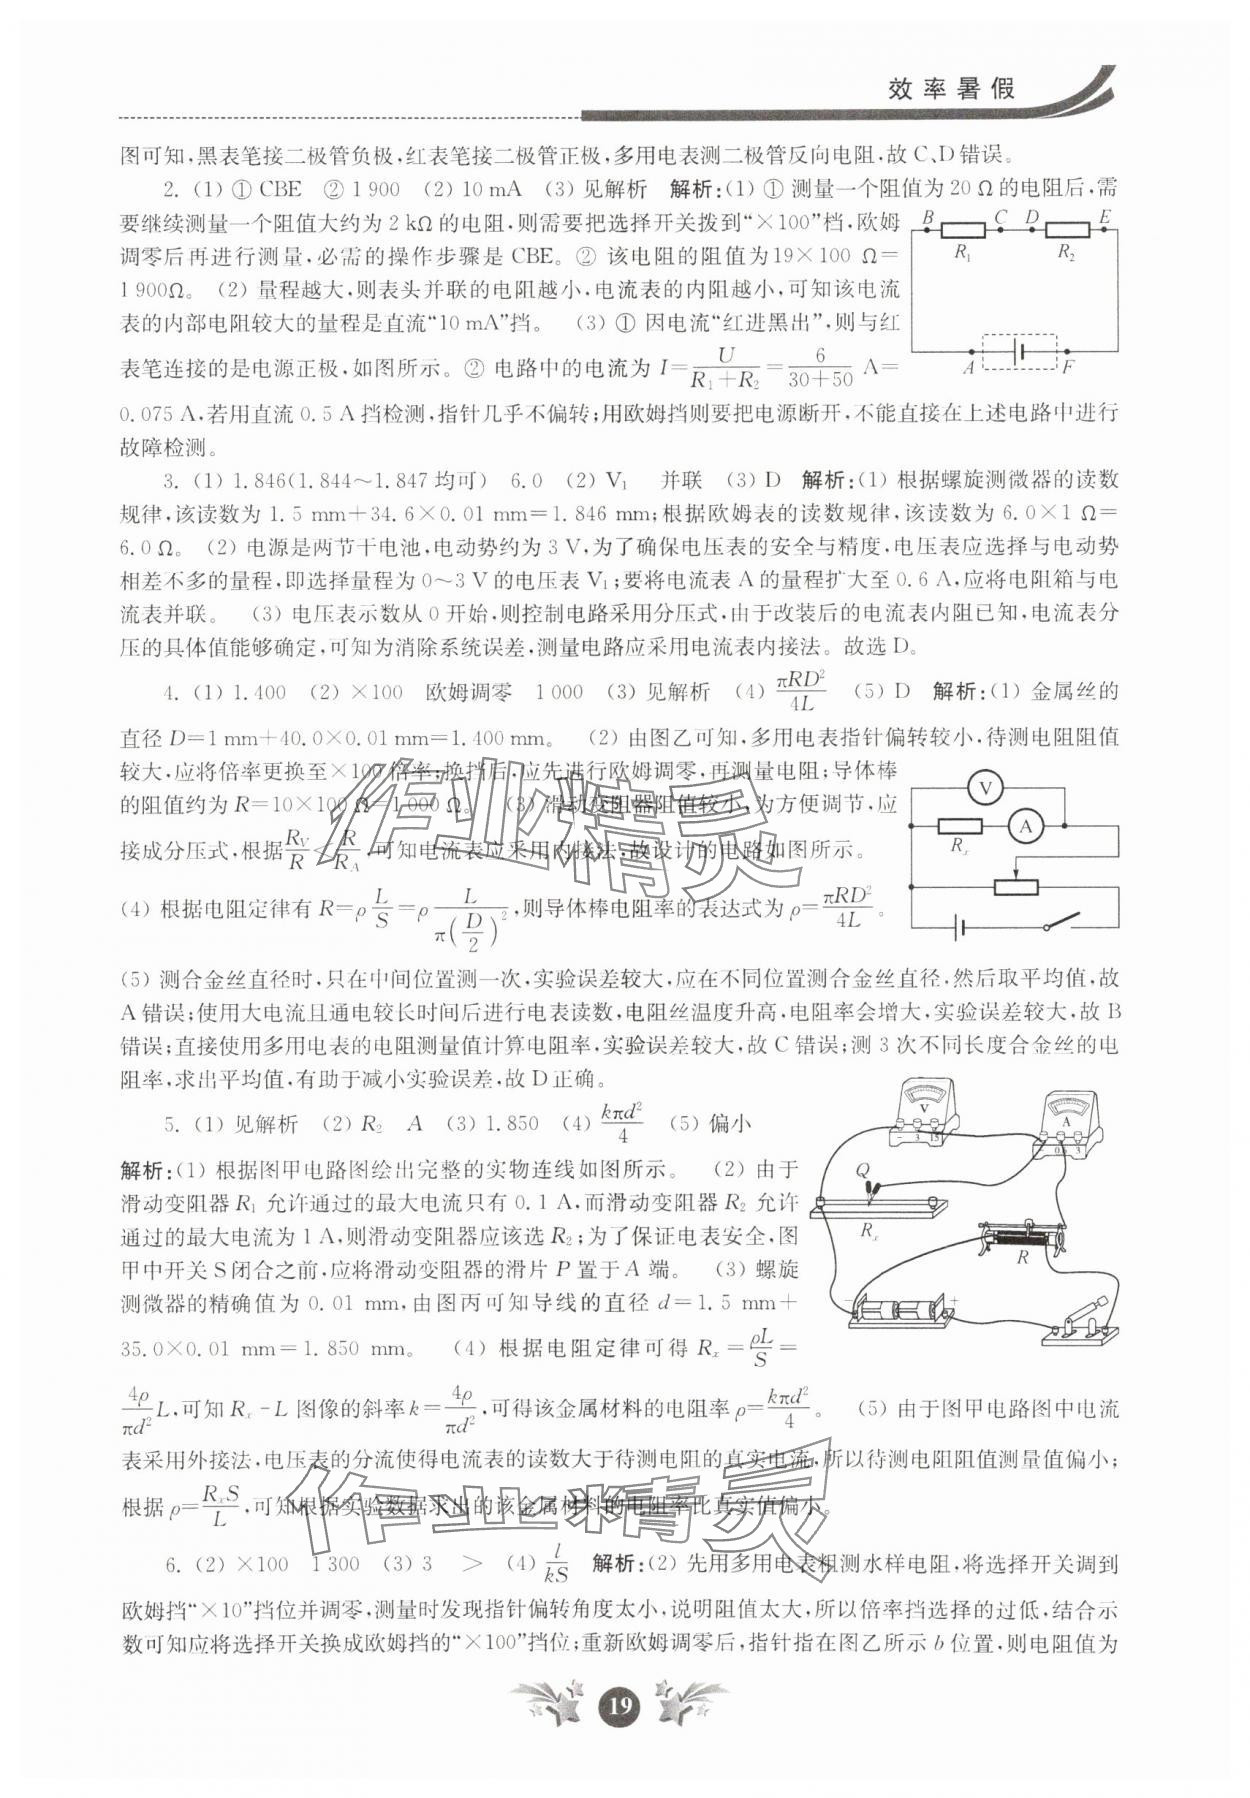 效率暑假
图可知,黑表笔接二极管负极,红表笔接二极管正极,多用电表测二极管反向电阻,故 C、D 错误。
2. (1) ① CBE ② 1 900 (2) 10 mA (3) 见解析 解析:(1) ① 测量一个阻值为 20 Ω 的电阻后,需
要继续测量一个阻值大约为 2 kΩ 的电阻,则需要把选择开关拨到“×100”档,欧姆
调零后再进行测量,必需的操作步骤是 CBE。② 该电阻的阻值为19×100 Ω=
1 900Ω。 (2) 量程越大,则表头并联的电阻越小,电流表的内阻越小,可知该电流
表的内部电阻较大的量程是直流“10 mA”挡。 (3) ① 因电流“红进黑出”,则与红
表笔连接的是电源正极,如图所示。② 电路中的电流为 I=U/(R₁+R₂)=6/(30+50) A=
B C D E
R₁ R₂
A F
0.075 A,若用直流 0.5 A 挡检测,指针几乎不偏转;用欧姆挡则要把电源断开,不能直接在上述电路中进行
故障检测。
3. (1) 1.846(1.844～1.847 均可) 6.0 (2) V₁ 并联 (3) D 解析:(1) 根据螺旋测微器的读数
规律,该读数为 1.5 mm+34.6×0.01 mm=1.846 mm;根据欧姆表的读数规律,该读数为 6.0×1 Ω=
6.0 Ω。 (2) 电源是两节干电池,电动势约为 3 V,为了确保电压表的安全与精度,电压表应选择与电动势
相差不多的量程,即选择量程为 0～3 V 的电压表 V₁;要将电流表 A 的量程扩大至 0.6 A,应将电阻箱与电
流表并联。 (3) 电压表示数从 0 开始,则控制电路采用分压式,由于改装后的电流表内阻已知,电流表分
压的具体值能够确定,可知为消除系统误差,测量电路应采用电流表内接法。故选 D。
4. (1) 1.400 (2) ×100 欧姆调零 1 000 (3) 见解析 (4) πRD²/4L (5) D 解析:(1) 金属丝的
直径 D=1 mm+40.0×0.01 mm=1.400 mm。 (2) 由图乙可知,多用电表指针偏转较小,待测电阻阻值
较大,应将倍率更换至×100 倍率;换挡后,应先进行欧姆调零,再测量电阻;导体棒
的阻值约为 R=10×100 Ω=1 000 Ω。 (3) 滑动变阻器阻值较小,为方便调节,应
接成分压式,根据 R_V/R < R/R_A,可知电流表应采用内接法,故设计的电路如图所示。
(4) 根据电阻定律有 R=ρ L/S=ρ L/(π(D/2)²),则导体棒电阻率的表达式为 ρ=πRD²/4L。
V
Rₓ A
(5) 测合金丝直径时,只在中间位置测一次,实验误差较大,应在不同位置测合金丝直径,然后取平均值,故
A 错误;使用大电流且通电较长时间后进行电表读数,电阻丝温度升高,电阻率会增大,实验误差较大,故 B
错误;直接使用多用电表的电阻测量值计算电阻率,实验误差较大,故 C 错误;测 3 次不同长度合金丝的电
阻率,求出平均值,有助于减小实验误差,故 D 正确。
5. (1) 见解析 (2) R₂ A (3) 1.850 (4) kπd²/4 (5) 偏小
解析:(1) 根据图甲电路图绘出完整的实物连线如图所示。 (2) 由于
滑动变阻器 R₁ 允许通过的最大电流只有 0.1 A,而滑动变阻器 R₂ 允许
通过的最大电流为 1 A,则滑动变阻器应该选 R₂;为了保证电表安全,图
甲中开关 S 闭合之前,应将滑动变阻器的滑片 P 置于 A 端。 (3) 螺旋
测微器的精确值为 0.01 mm,由图丙可知导线的直径 d=1.5 mm+
35.0×0.01 mm=1.850 mm。 (4) 根据电阻定律可得 Rₓ=ρL/S=
V
- 3 15
A
- 0.6 3
Q
Rₓ
R
- +
4ρ/πd² L,可知 Rₓ-L 图像的斜率 k=4ρ/πd²,可得该金属材料的电阻率 ρ=kπd²/4。 (5) 由于图甲电路图中电流
表采用外接法,电压表的分流使得电流表的读数大于待测电阻的真实电流,所以待测电阻阻值测量值偏小;
根据 ρ=RₓS/L,可知根据实验数据求出的该金属材料的电阻率比真实值偏小。
6. (2) ×100 1 300 (3) 3 > (4) l/kS 解析:(2) 先用多用电表粗测水样电阻,将选择开关调到
欧姆挡“×10”挡位并调零,测量时发现指针偏转角度太小,说明阻值太大,所以倍率挡选择的过低,结合示
数可知应将选择开关换成欧姆挡的“×100”挡位;重新欧姆调零后,指针指在图乙所示 b 位置,则电阻值为
19
作业精灵
作业精灵